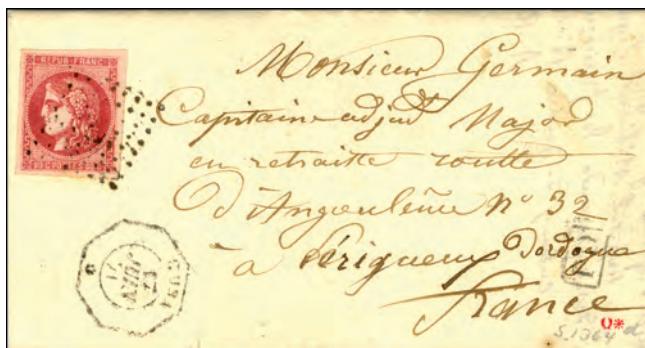 REPUB. FRANC.
Monsieur Germain
Capitaine adjud^t Major
en retraite routte
d'Angoulême N° 32
à Périgueux Dordogne
France
JUIN
71